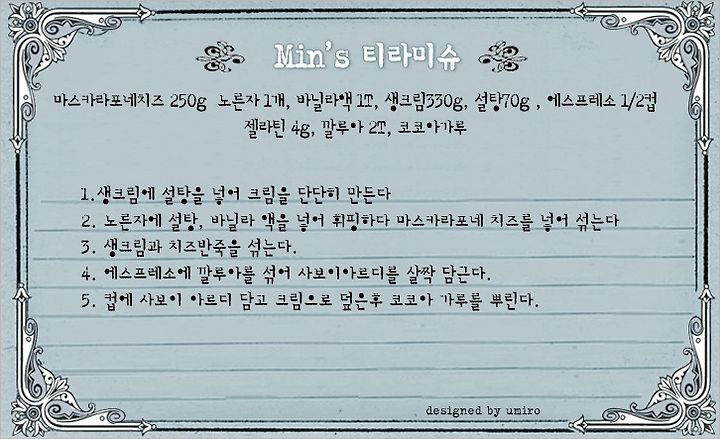 Min's 티라미슈
마스카라포네치즈 250g 노른자 1개, 바닐라액 1T, 생크림330g, 설탕70g , 에스프레소 1/2컵
젤라틴 4g, 깔루아 2T, 코코아가루
1.생크림에 설탕을 넣어 크림을 단단히 만든다
2. 노른자에 설탕, 바닐라 액을 넣어 휘핑하다 마스카라포네 치즈를 넣어 섞는다
3. 생크림과 치즈반죽을 섞는다.
4. 에스프레소에 깔루아를 섞어 사보이아르디를 살짝 담근다.
5. 컵에 사보이 아르디 담고 크림으로 덮은후 코코아 가루를 뿌린다.
designed by umiro